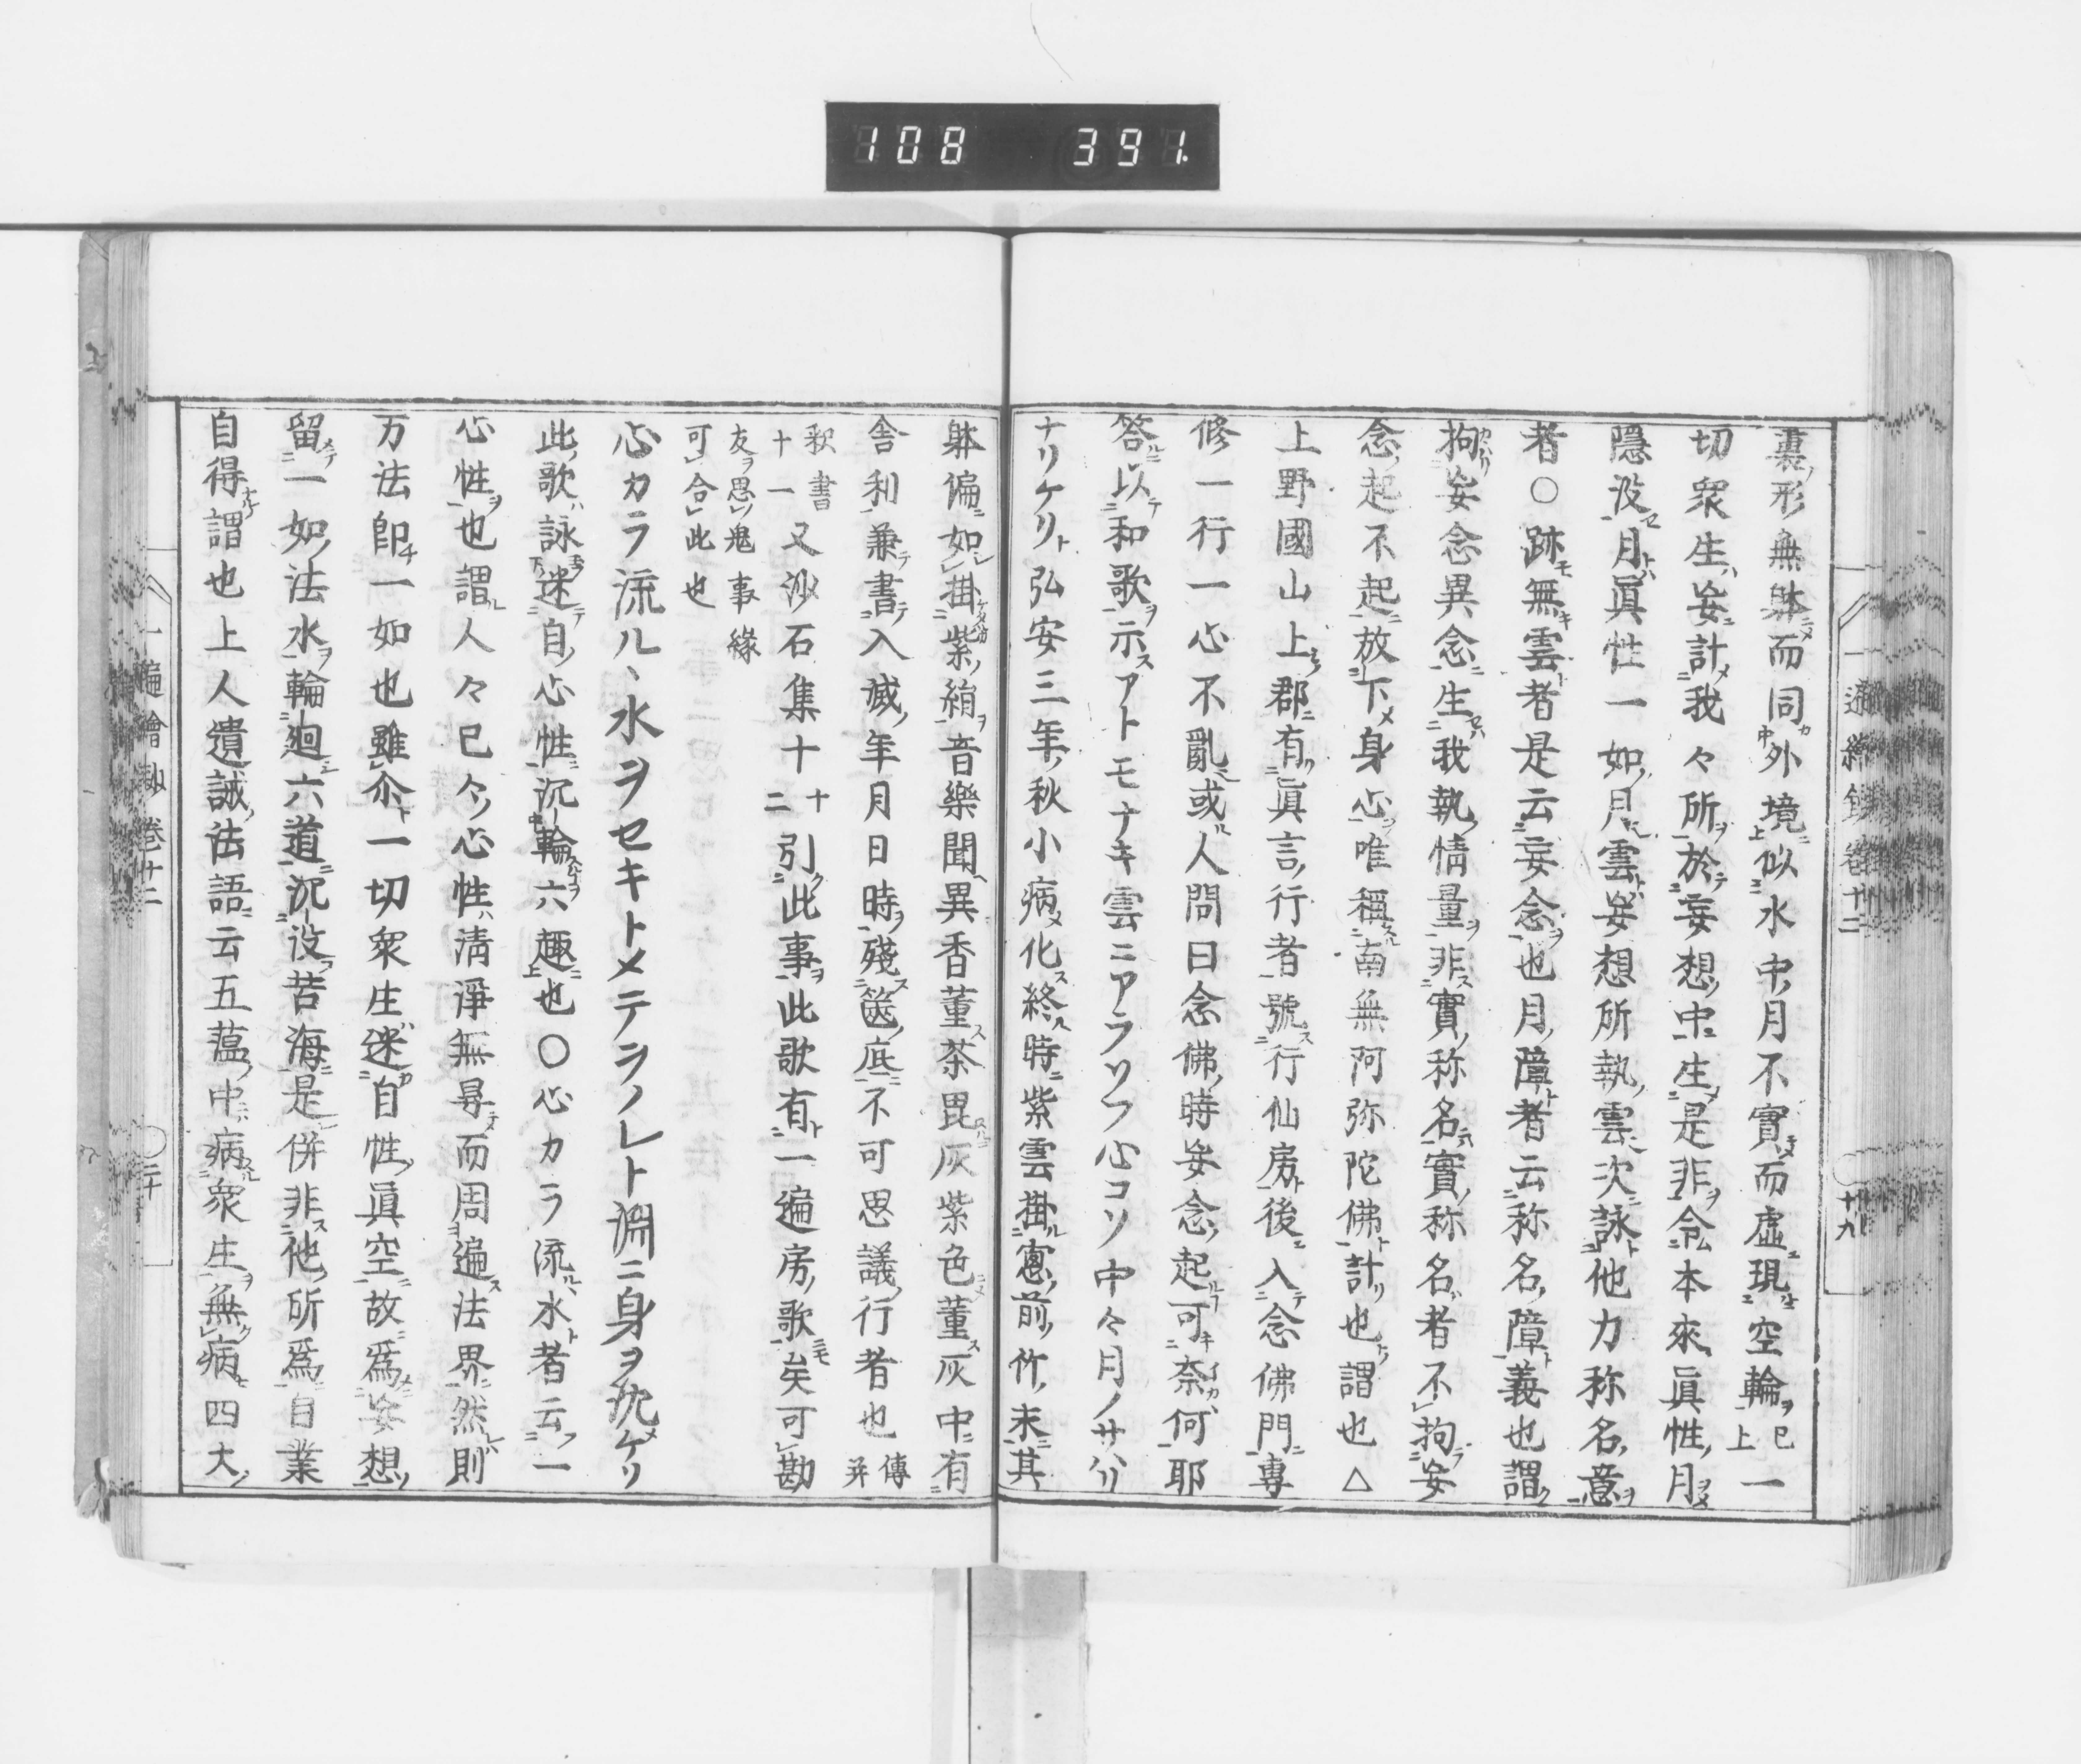 108 391.
裏形無躰而同外境似水中月不實而虛現空輪已上一
切衆生妄計我々所於妄想中生是非令本來眞性月
隱没月眞性一如月雲妄想所執雲次詠他力称名意
者〇跡無雲者是云妄念也月障者云称名障義也謂
拘妄念異念生我執情量非實称名實称名者不拘妄
念起不起放下身心唯稱南無阿弥陀佛計也謂也△
上野國山上郡有眞言行者號行仙房後入念佛門專
修一行一心不亂或人問曰念佛時妄念起可奈何耶
答以和歌示アトモナキ雲ニアラソフ心コソ中々月ノサハリ
ナリケリト弘安三年秋小病化終時紫雲掛窓前竹末其
躰偏如掛紫絹音樂聞異香薫荼毘灰紫色薫灰中有
舎利兼書入滅年月日時殘篋底不可思議行者也傳并
釈書十一又沙石集十十二引此事此歌有一遍房歌矣可勘
友ヲ思鬼事緣
可合此也
心カラ流ルヽ水ヲセキトメテヲノレト淵ニ身ヲ沈ケリ
此歌詠迷自心性沉輪六趣也〇心カラ流水者云一
心性也謂人々已々心性清淨無㝵而周遍法界然則
万法卽一如也雖尒一切衆生迷自性眞空故爲妄想
留一如法水輪廻六道沉没苦海是併非他所爲自業
自得謂也上人遺誡法語云五薀中病衆生無病四大
一遍繪鈔卷十二 十九
一遍繪鈔卷廿二 二十